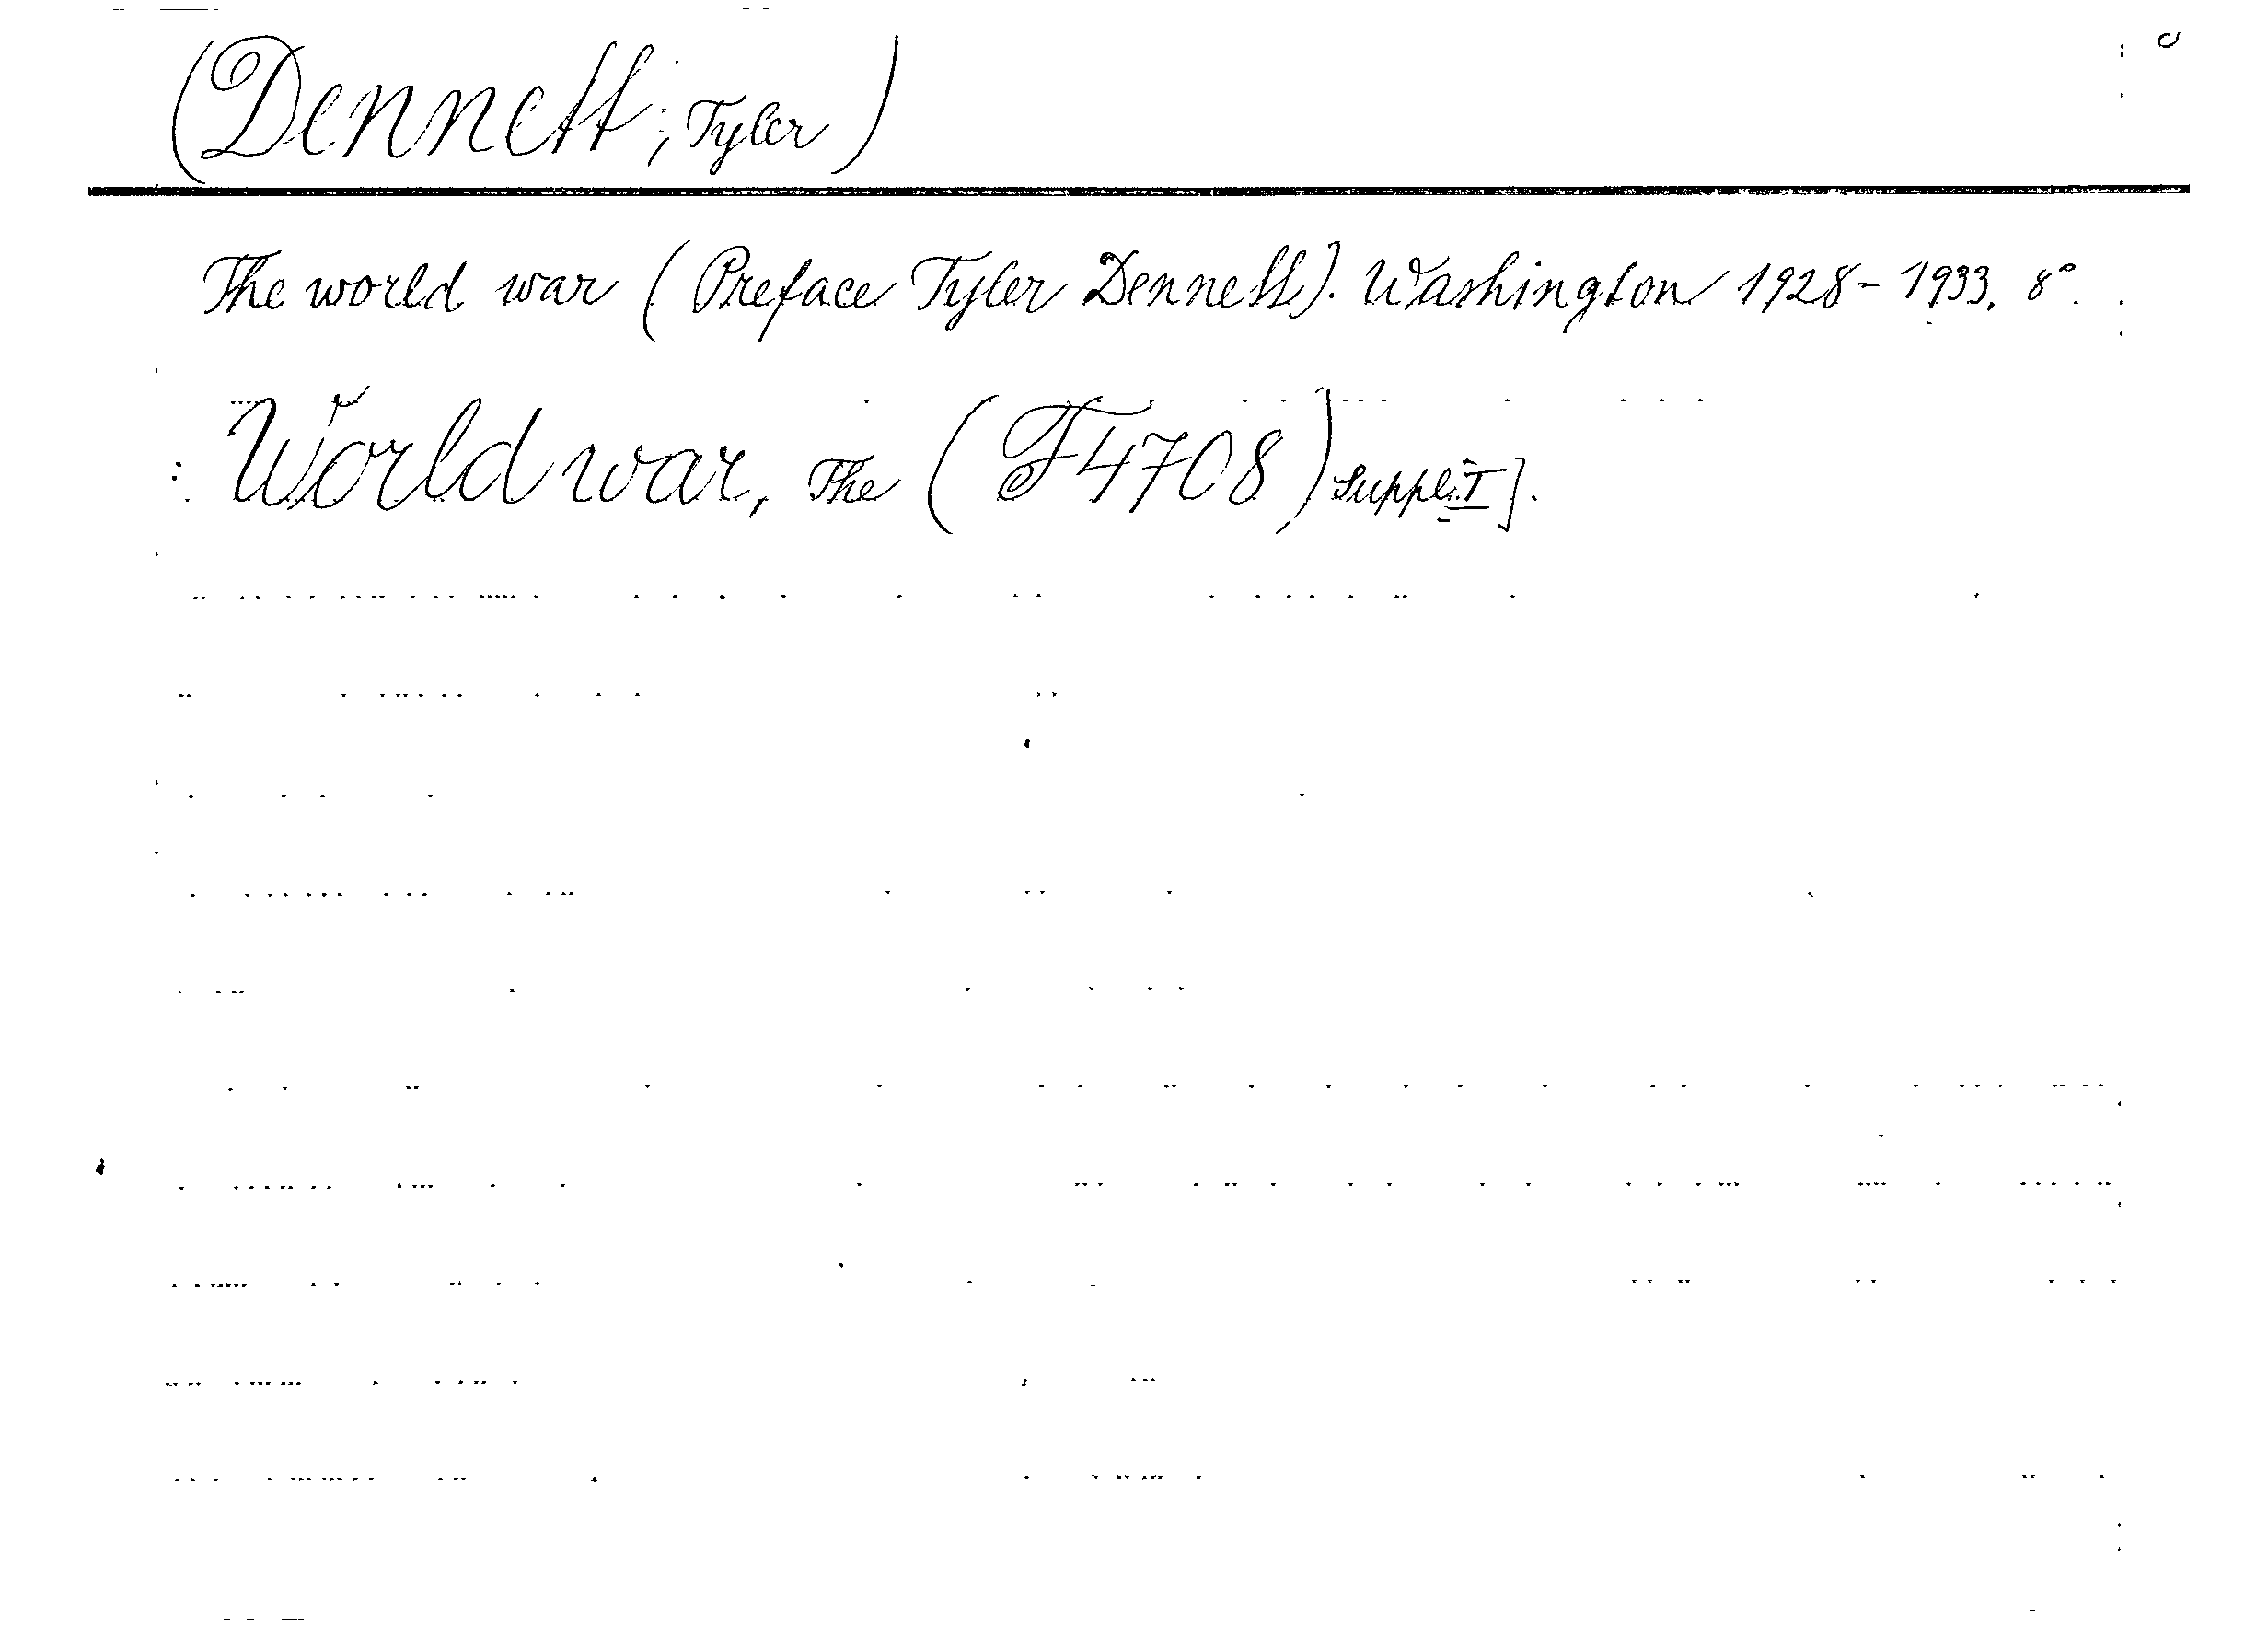 (Dennett, Tyler)
The world war (Preface Tyler Dennett). Washington 1928-1933. 8°.
World war, The (F4708) Suppl. I].